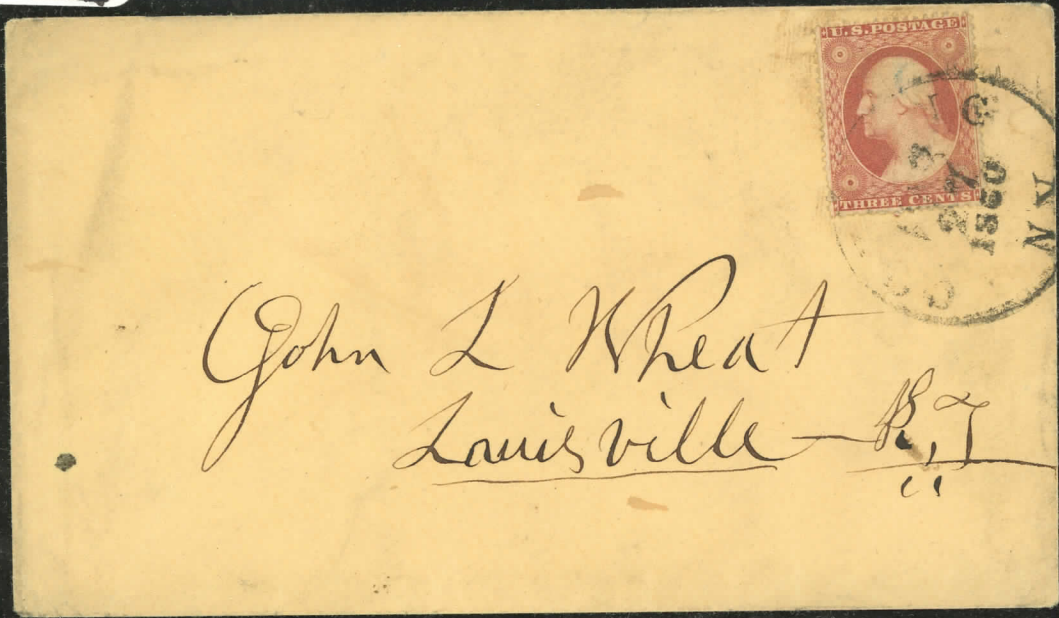 U.S.POSTAGE
THREE CENTS
N Y
1860
John L Wheat
Louisville